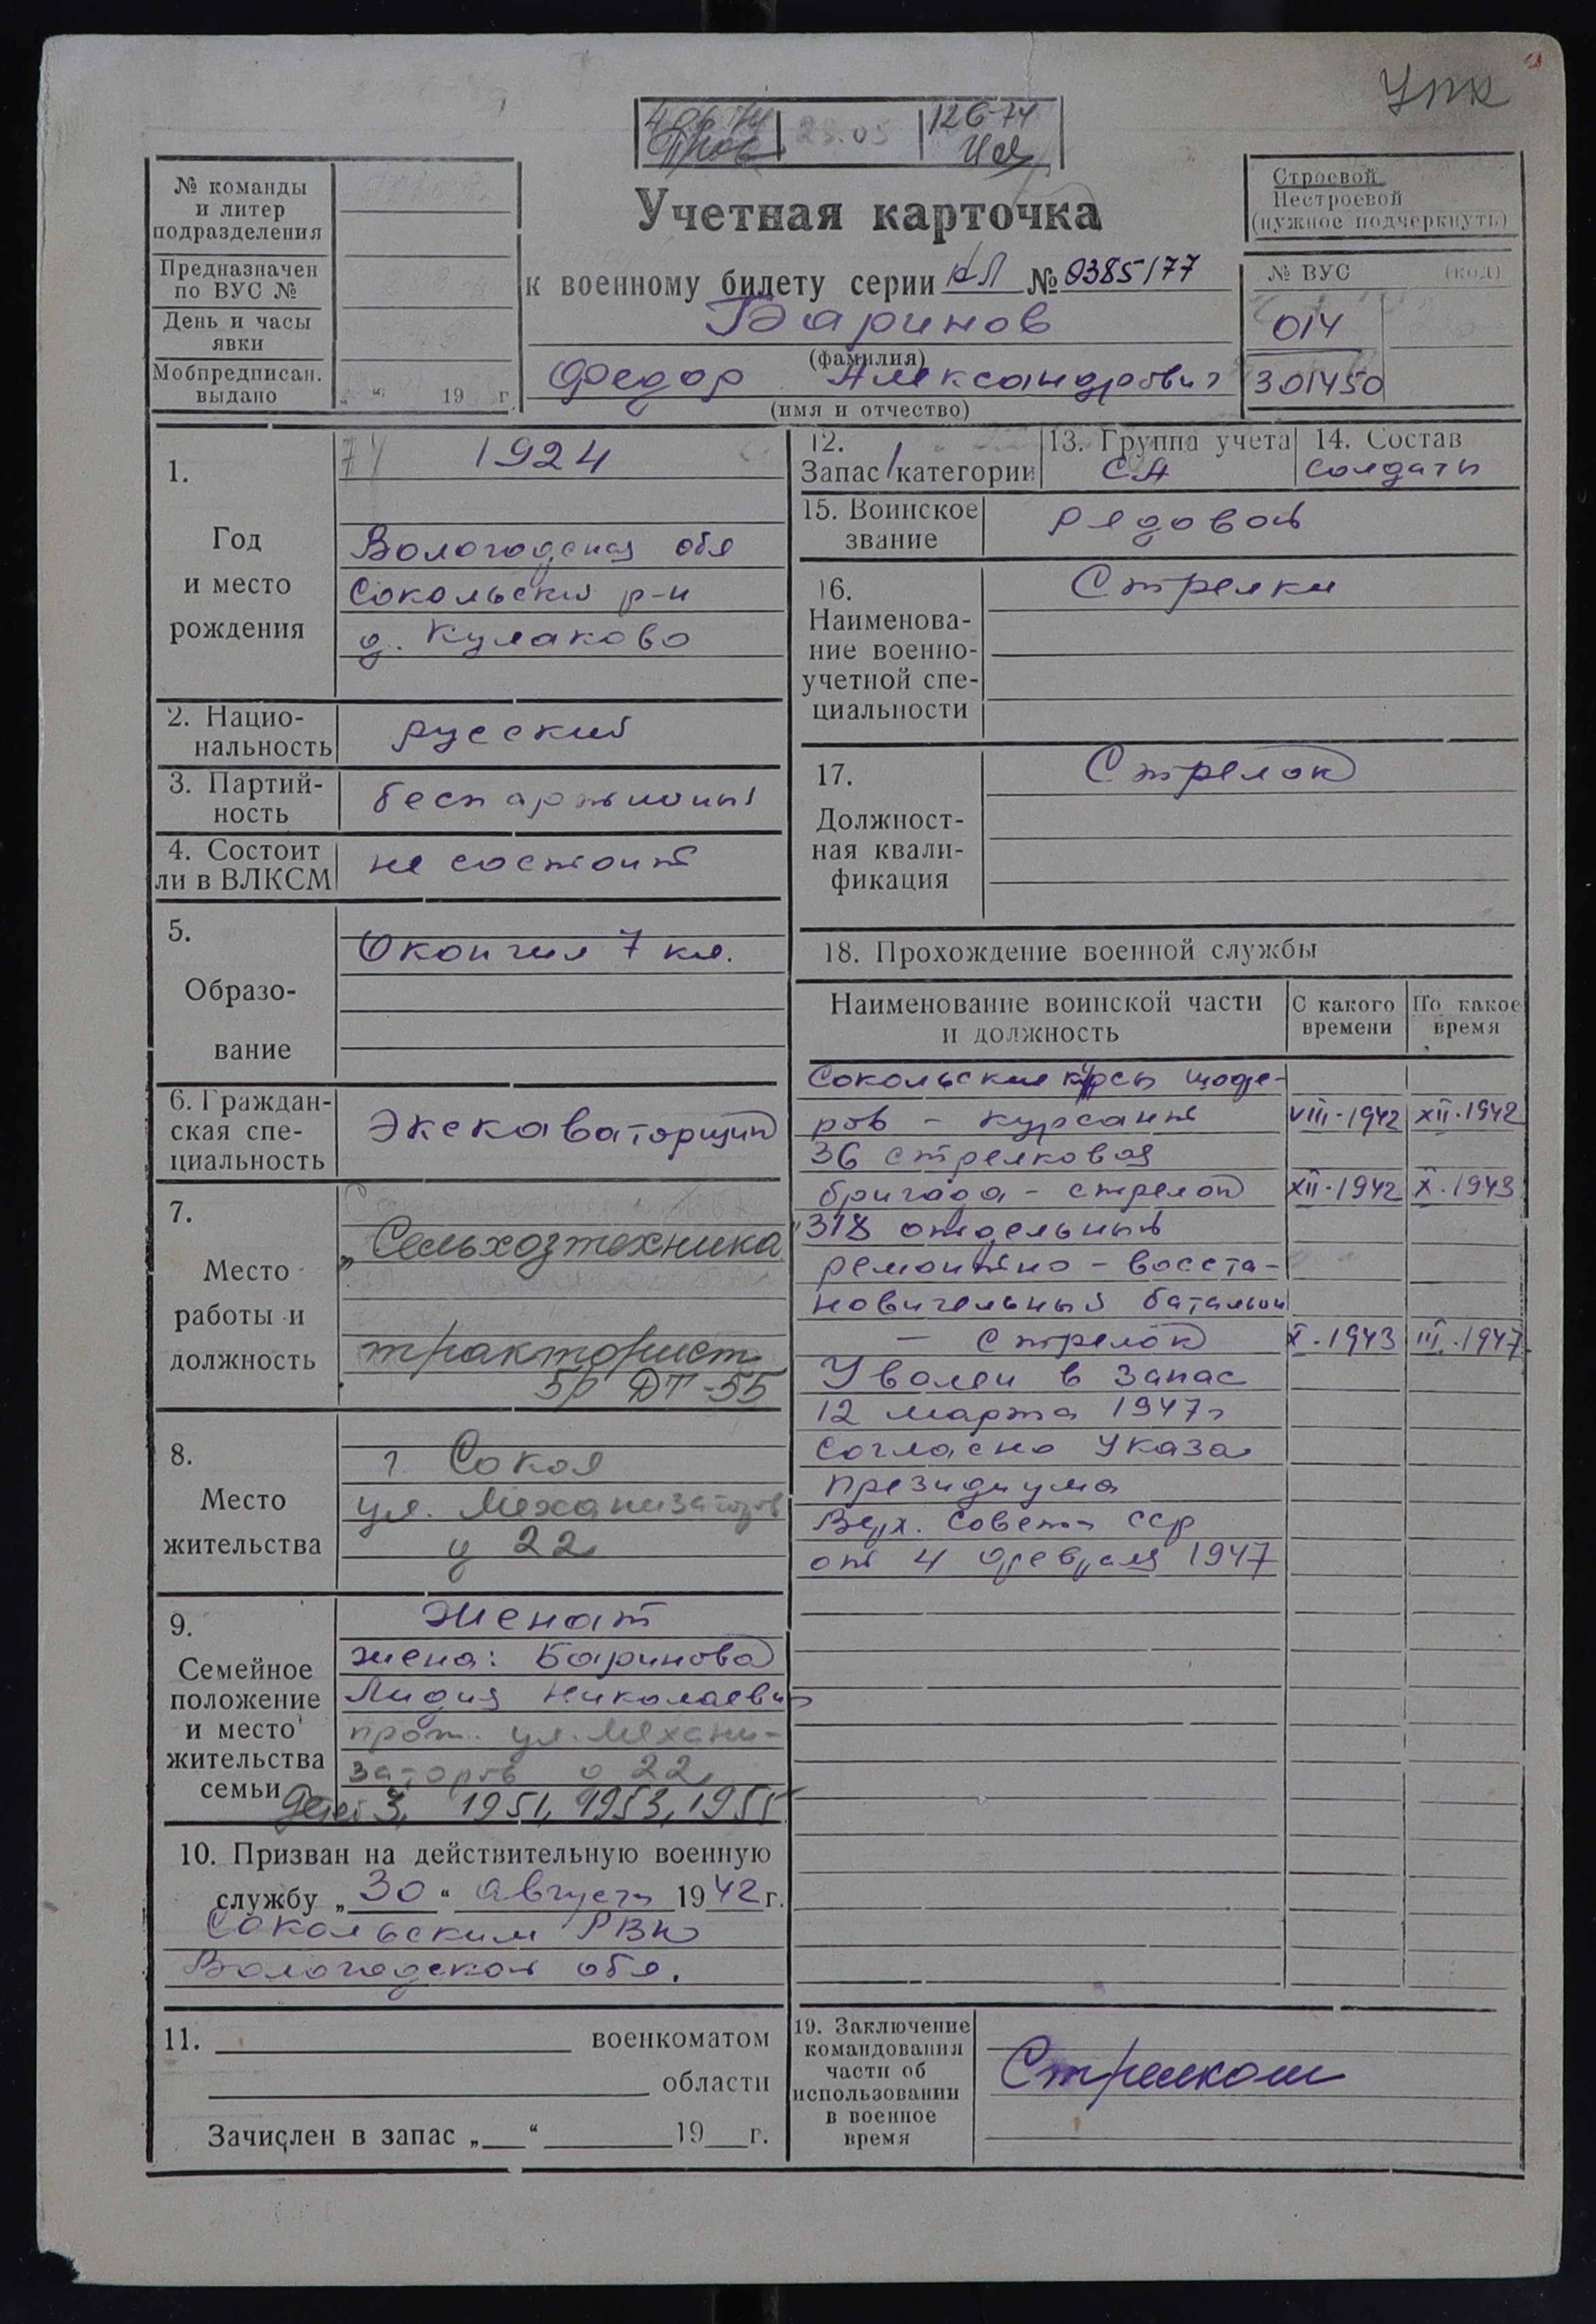 УПК
12 6-74
Учетная карточка
к военному билету серии КЛ № 0385177
Баринов
(фамилия)
Федор Александрович
(имя и отчество)
№ команды
и литер
подразделения
Предназначен
по ВУС №
День и часы
явки
Мобпредписан.
выдано „ “ 19 г.
Строевой
Нестроевой
(нужное подчеркнуть)
№ ВУС (код)
014
301450
1.
Год
и место
рождения
1924
Вологодская обл
Сокольский р-н
д. Кулаково
2. Нацио-
нальность
русский
3. Партий-
ность
беспартийный
4. Состоит
ли в ВЛКСМ
не состоит
5.
Образо-
вание
Окончил 7 кл.
6. Граждан-
ская спе-
циальность
Экскаваторщик
7.
Место
работы и
должность
„Сельхозтехника
тракторист
5р ДТ-55
8.
Место
жительства
г Сокол
ул. Механизаторов
д 22
9.
Семейное
положение
и место
жительства
семьи
Женат
жена: Баринова
Лидия Николаевн
прож. ул. Механи-
заторов д 22
Детей 3, 1951, 1953, 1955
10. Призван на действительную военную
службу „30“ августа 1942 г.
Сокольским РВК
Вологодской обл.
11. военкоматом
области
Зачислен в запас „ “ 19 г.
12.
Запас 1 категории
13. Группа учета
СА
14. Состав
солдаты
15. Воинское
звание
рядовой
16.
Наименова-
ние военно-
учетной спе-
циальности
Стрелки
17.
Должност-
ная квали-
фикация
Стрелок
18. Прохождение военной службы
Наименование воинской части
и должность
С какого
времени
По какое
время
Сокольские курсы шофе-
ров – курсант VIII-1942 XII.1942
36 стрелковая
бригада – стрелок XII-1942 X.1943
318 отдельный
ремонтно – восста-
новительный батальон
– стрелок X.1943 III.1947
Уволен в запас
12 марта 1947г
согласно Указа
Президиума
Верх. Совета ССР
от 4 февраля 1947
19. Заключение
командования
части об
использовании
в военное
время
Стрелком